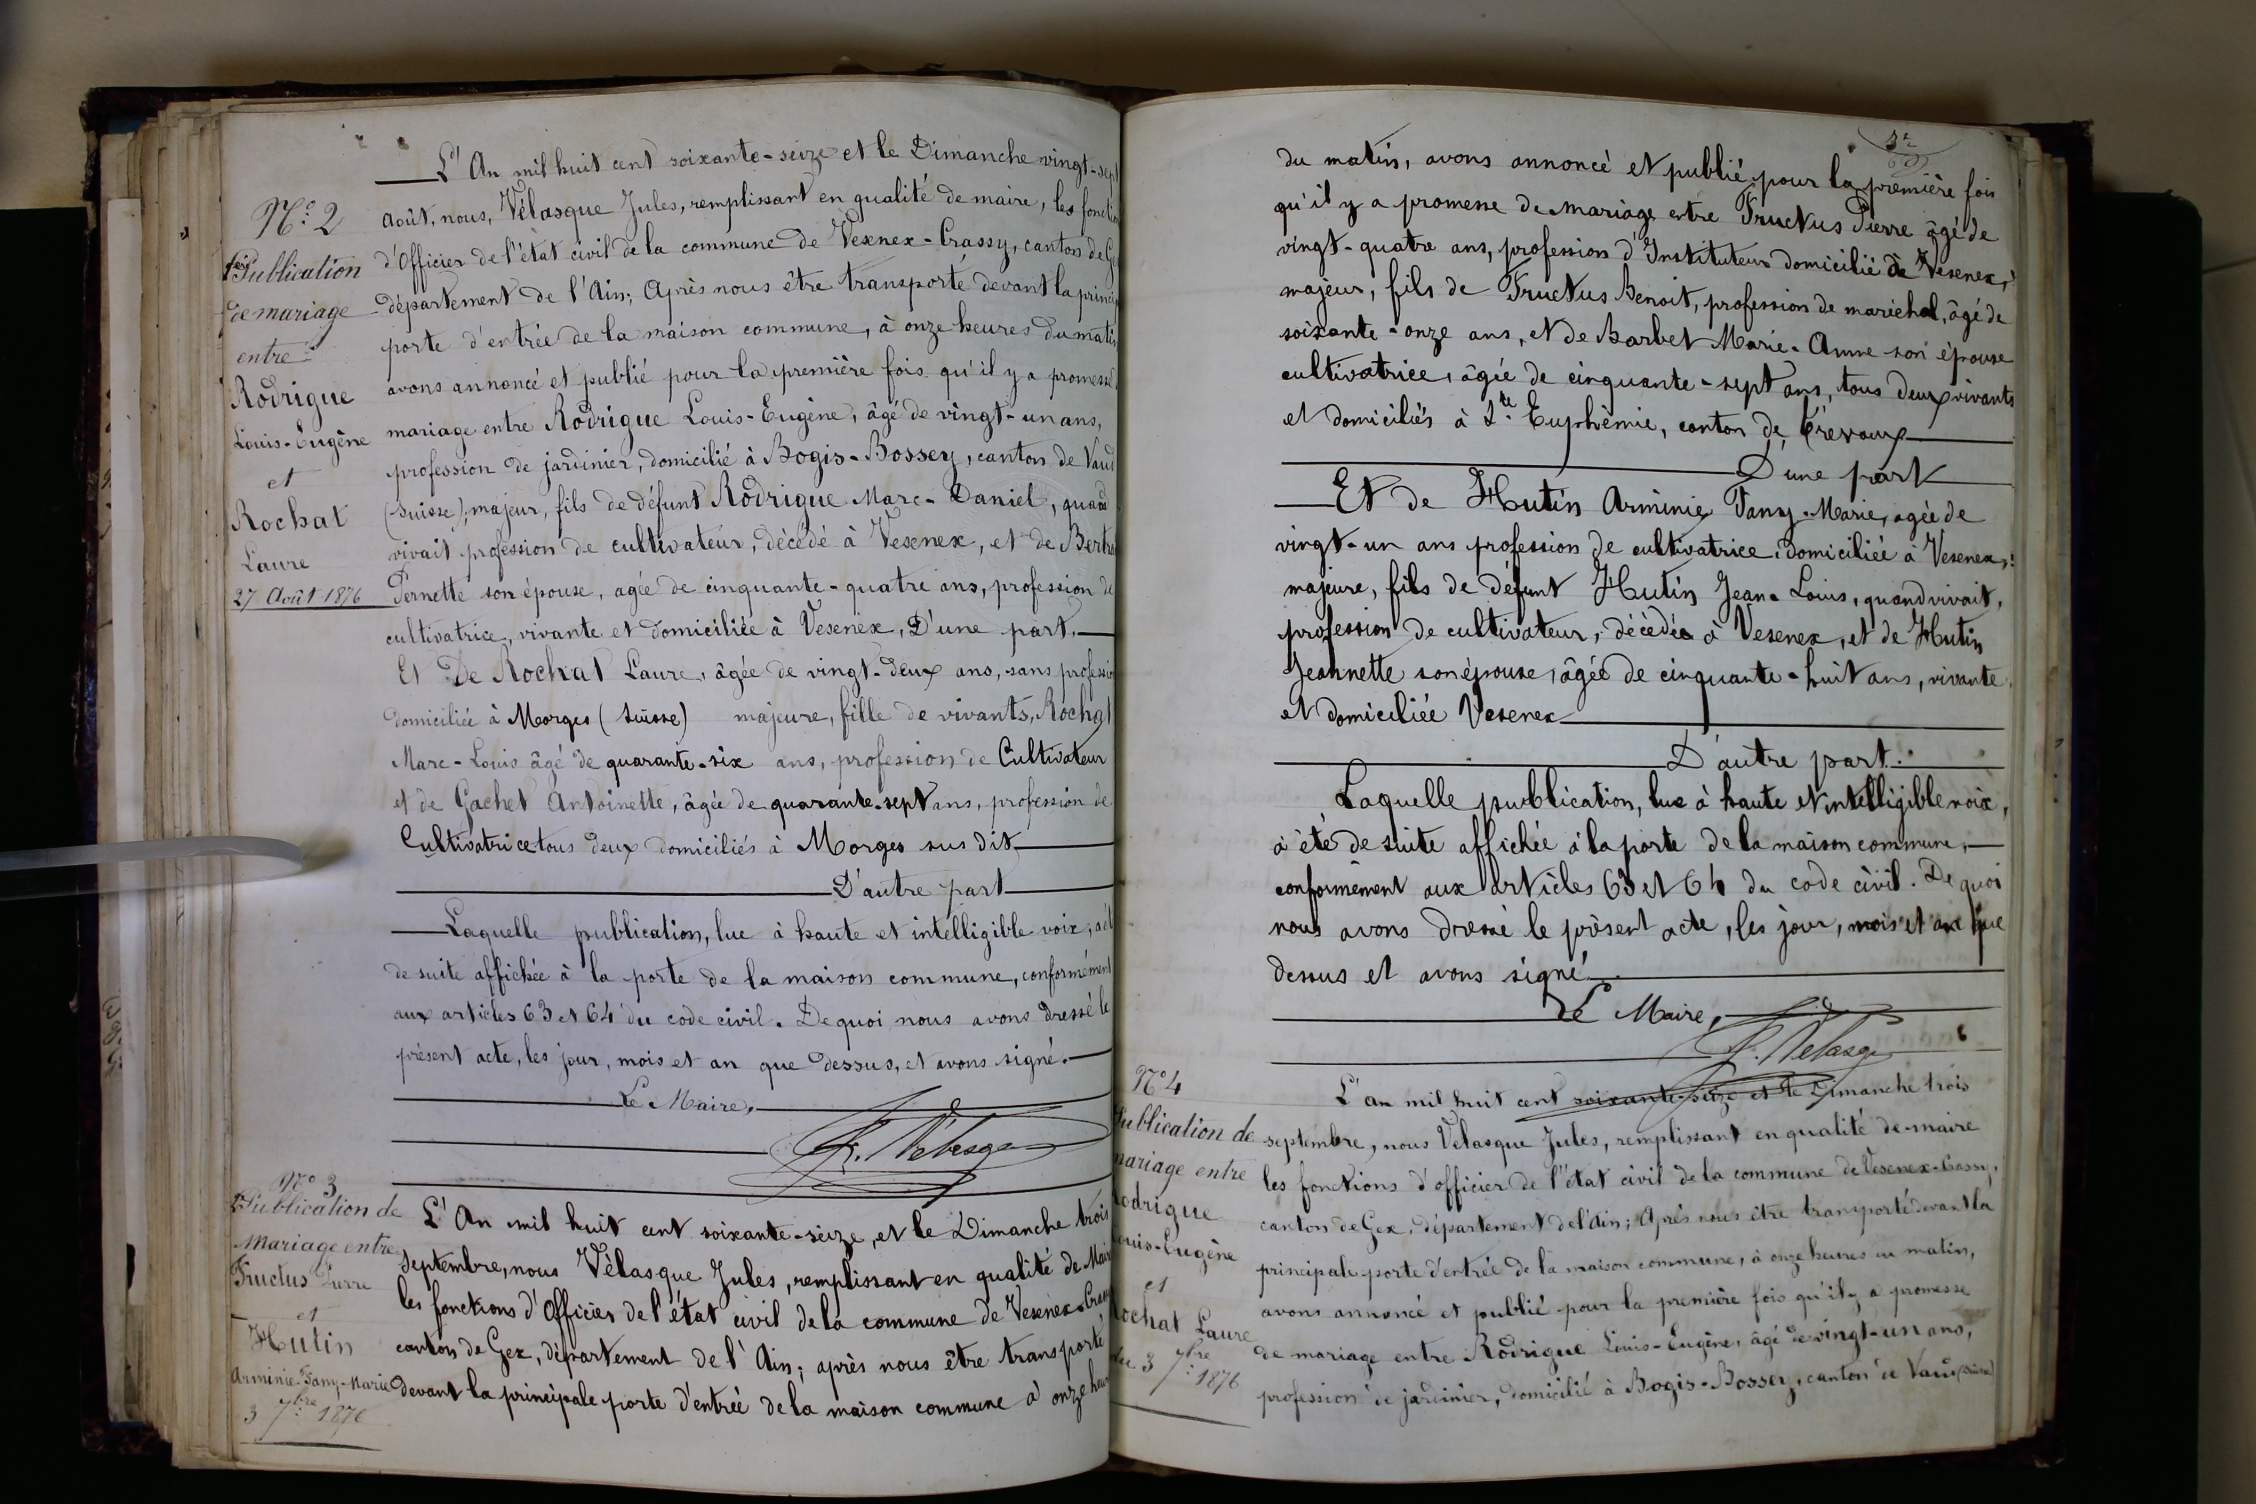 L'An mil huit cent soixante-seize et le Dimanche vingt-sept
Août, nous, Vélasque Jules, remplissant en qualité de maire, les fonction
d'Officier de l'état civil de la commune de Vesnex-Crassy, canton de G
département de l'Ain; Après nous être transporté devant la princip
porte d'entrée de la maison commune, à onze heures du matin
avons annoncé et publié pour la première fois qu'il y a promesse
mariage entre Rodrigue Louis-Eugène, âgé de vingt-un ans,
profession de jardinier, domicilié à Bogis-Bossey, canton de Vaud
(Suisse), majeur, fils de défunt Rodrigue Marc-Daniel, quand
vivait profession de cultivateur, décédé à Vesenex, et de
Pernette son épouse, agée de cinquante-quatre ans, profession de
cultivatrice, vivante et domiciliée à Vesenex, D'une part.
Et De Rochat Laure, âgée de vingt-deux ans, sans professio
domiciliée à Morges (Suisse) majeure, fille de vivants, Rochat
Marc-Louis âgé de quarante-six ans, profession de Cultivateur
et de Gachet Antoinette, âgée de quarante-sept ans, profession de
Cultivatrice tous deux domiciliés à Morges sus dit
D'autre part
Laquelle publication, lue à haute et intelligible voix, a ét
de suite affichée à la porte de la maison commune, conformément
aux articles 63 et 64 du code civil. De quoi nous avons dressé le
présent acte, les jour, mois et an que dessus, et avons signé.
Le Maire,
J. Vélasque
N°. 2
1ère Publication
de mariage
entre
Rodrigue
Louis-Eugène
et
Rochat
Laure
27 Août 1876
N° 3
Publication de
Mariage entre
Fructus Pierre
et
Hutin
Arminie-Fany-Marie
3 7bre 1876
L'An mil huit cent soixante-seize, et le Dimanche trois
Septembre, nous Vélasque Jules, remplissant en qualité de Mair
les fonctions d'Officier de l'état civil de la commune de Vesenex-Crassy
canton de Gex, département de l'Ain; après nous être transporté
devant la principale porte d'entrée de la maison commune à onze heur
du matin, avons annoncé et publié pour la première fois
qu'il y a promesse de mariage entre Fructus Pierre âgé de
vingt-quatre ans, profession d'Instituteur domicilié à Vesenex,
majeur, fils de Fructus Benoit, profession de maréchal, âgé de
soixante-onze ans, et de Barbet Marie-Anne son épouse
cultivatrice, âgée de cinquante-sept ans, tous deux vivants
et domiciliés à Ste Euphémie, canton de Trévoux
D'une part
Et de Hutin Arminie Fany-Marie, agée de
vingt-un ans profession de cultivatrice, domiciliée à Vesenex,
majeure, fils de défunt Hutin Jean-Louis, quand vivait,
profession de cultivateur, décédée à Vesenex, et de Hutin
Jeannette son épouse, âgée de cinquante-huit ans, vivante
et domiciliée Vesenex
D'autre part.
Laquelle publication, lue à haute et intelligible voix,
a été de suite affichée à la porte de la maison commune,
conformément aux articles 63 et 64 du code civil. De quoi
nous avons dressé le présent acte, les jour, mois et an que
dessus et avons signé
Le Maire,
J. Vélasque
N° 4
Publication de
mariage entre
Rodrigue
Louis-Eugène
et
Rochat Laure
du 3 7bre 1876
L'an mil huit cent soixante-seize et le Dimanche trois
septembre, nous Vélasque Jules, remplissant en qualité de maire
les fonctions d'officier de l'état civil de la commune de Vesenex-Crassy,
canton de Gex, département de l'Ain; Après nous être transporté devant la
principale porte d'entrée de la maison commune, à onze heures du matin,
avons annoncé et publié pour la première fois qu'il y a promesse
de mariage entre Rodrigue Louis-Eugène, âgé de vingt-un ans,
profession de jardinier, domicilié à Bogis-Bossey, canton de Vaud (Suisse)